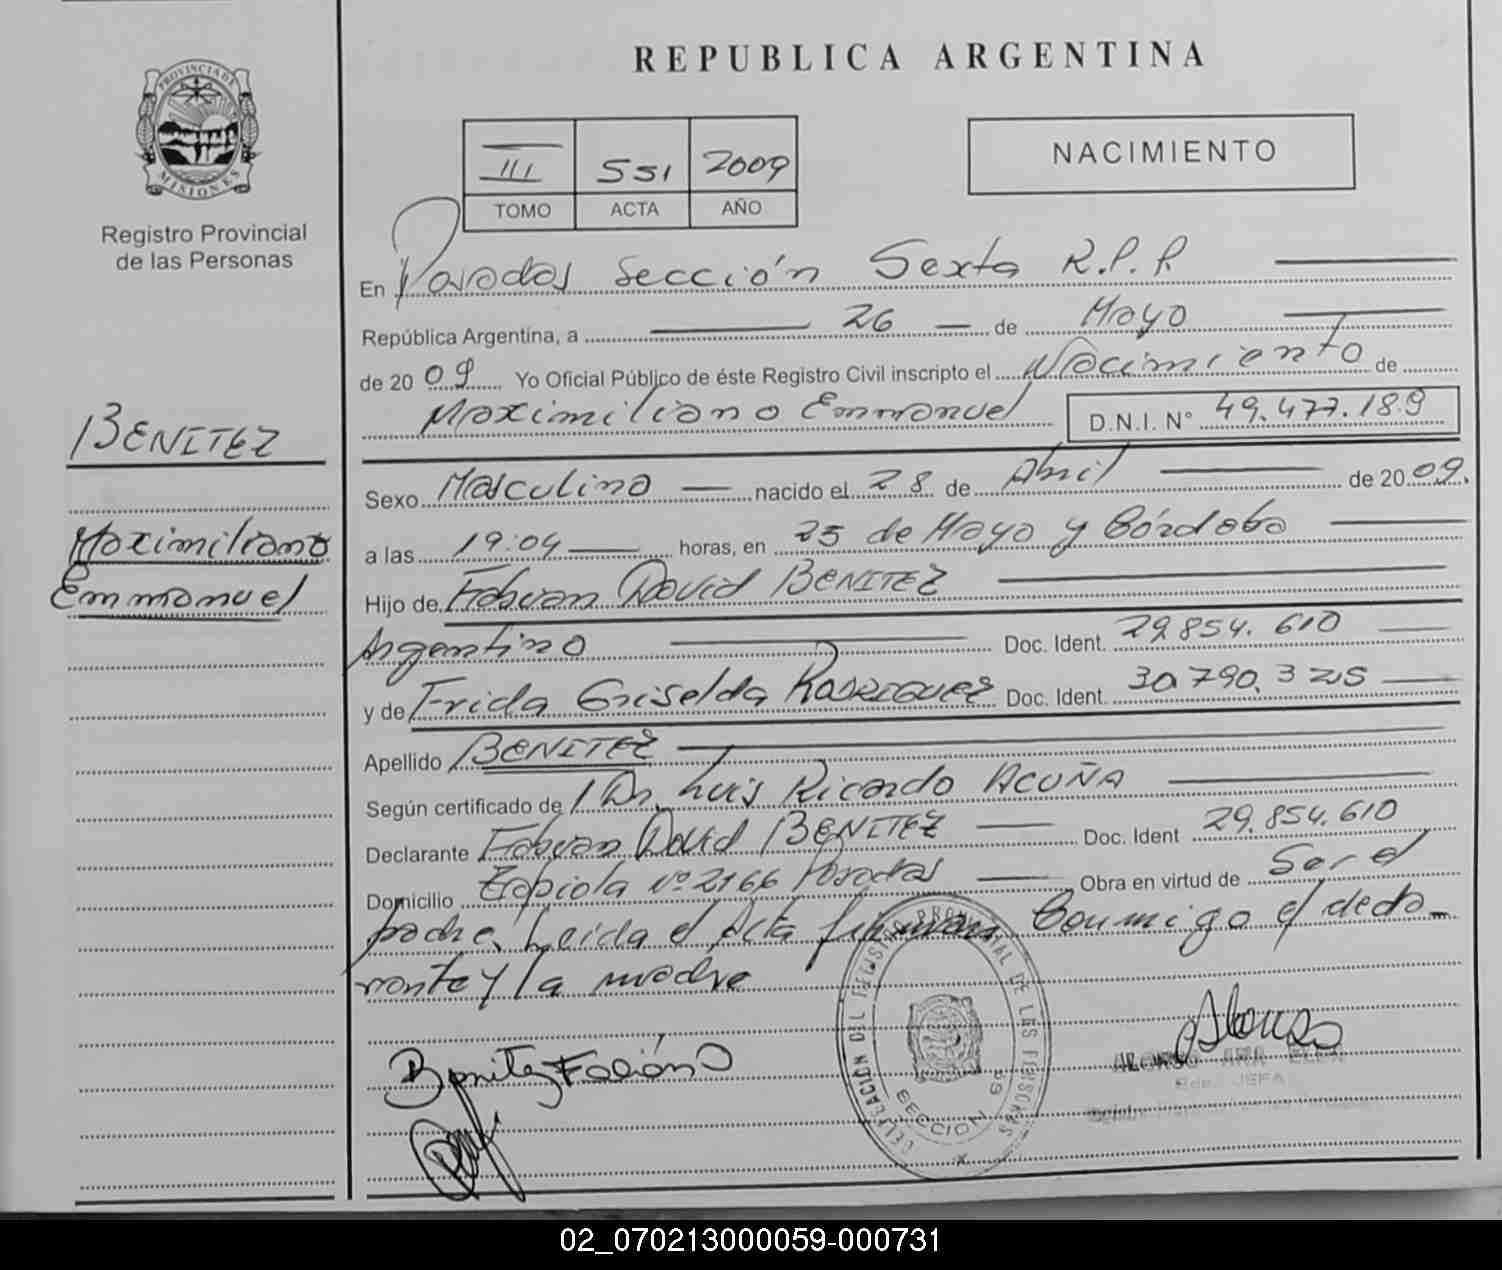 REPUBLICA ARGENTINA
PROVINCIA DE MISIONES
Registro Provincial
de las Personas
III 551 2009
TOMO ACTA AÑO
NACIMIENTO
En Posadas Sección Sexta R.P.P.
República Argentina, a 26 de Mayo
de 2009 Yo Oficial Público de éste Registro Civil inscripto el Nacimiento de
Maximiliano Emmanuel D.N.I. Nº 49.477.189
BENITEZ
Maximiliano
Emmanuel
Sexo Masculino nacido el 28 de Abril de 2009.
a las 19:04 horas, en 25 de Mayo y Córdoba
Hijo de Fabian David BENITEZ
Argentino Doc. Ident. 29.854.610
y de Frida Griselda RODRIGUEZ Doc. Ident. 30.790.325
Apellido BENITEZ
Según certificado de Dr. Luis Ricardo ACUÑA
Declarante Fabian David BENITEZ Doc. Ident 29.854.610
Domicilio Tapiola nº 2166 Posadas Obra en virtud de Ser el
padre. Leida el Acta firman Conmigo el decla-
rante y la madre
Benitez Fabián D
Alonso
ALONSO ANA
JEFA
SECCION
02_070213000059-000731